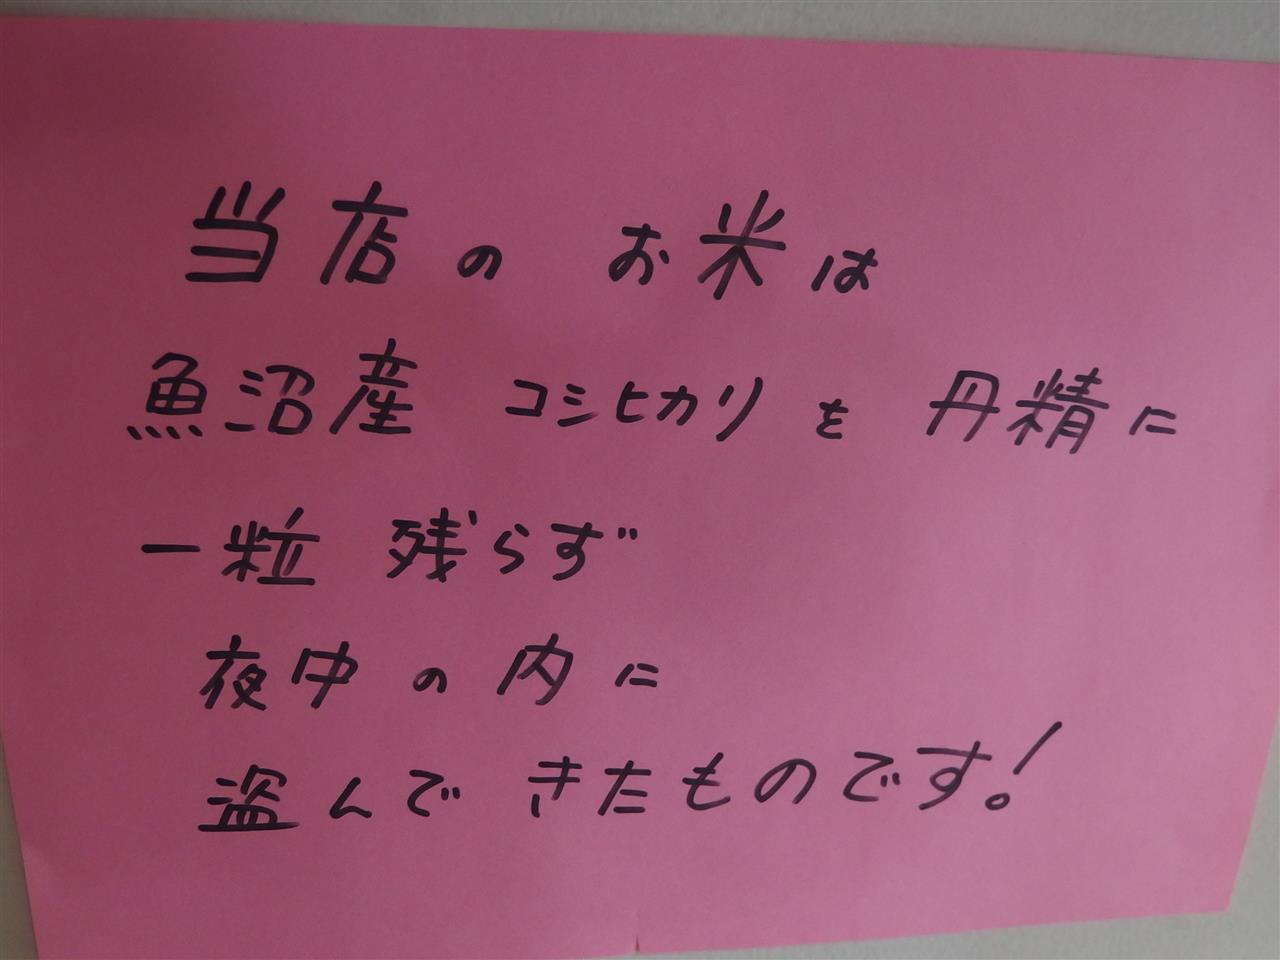 当店の お米は
魚沼産 コシヒカリを 丹精に
一粒 残らず
夜中の内に
盗んで きたものです!